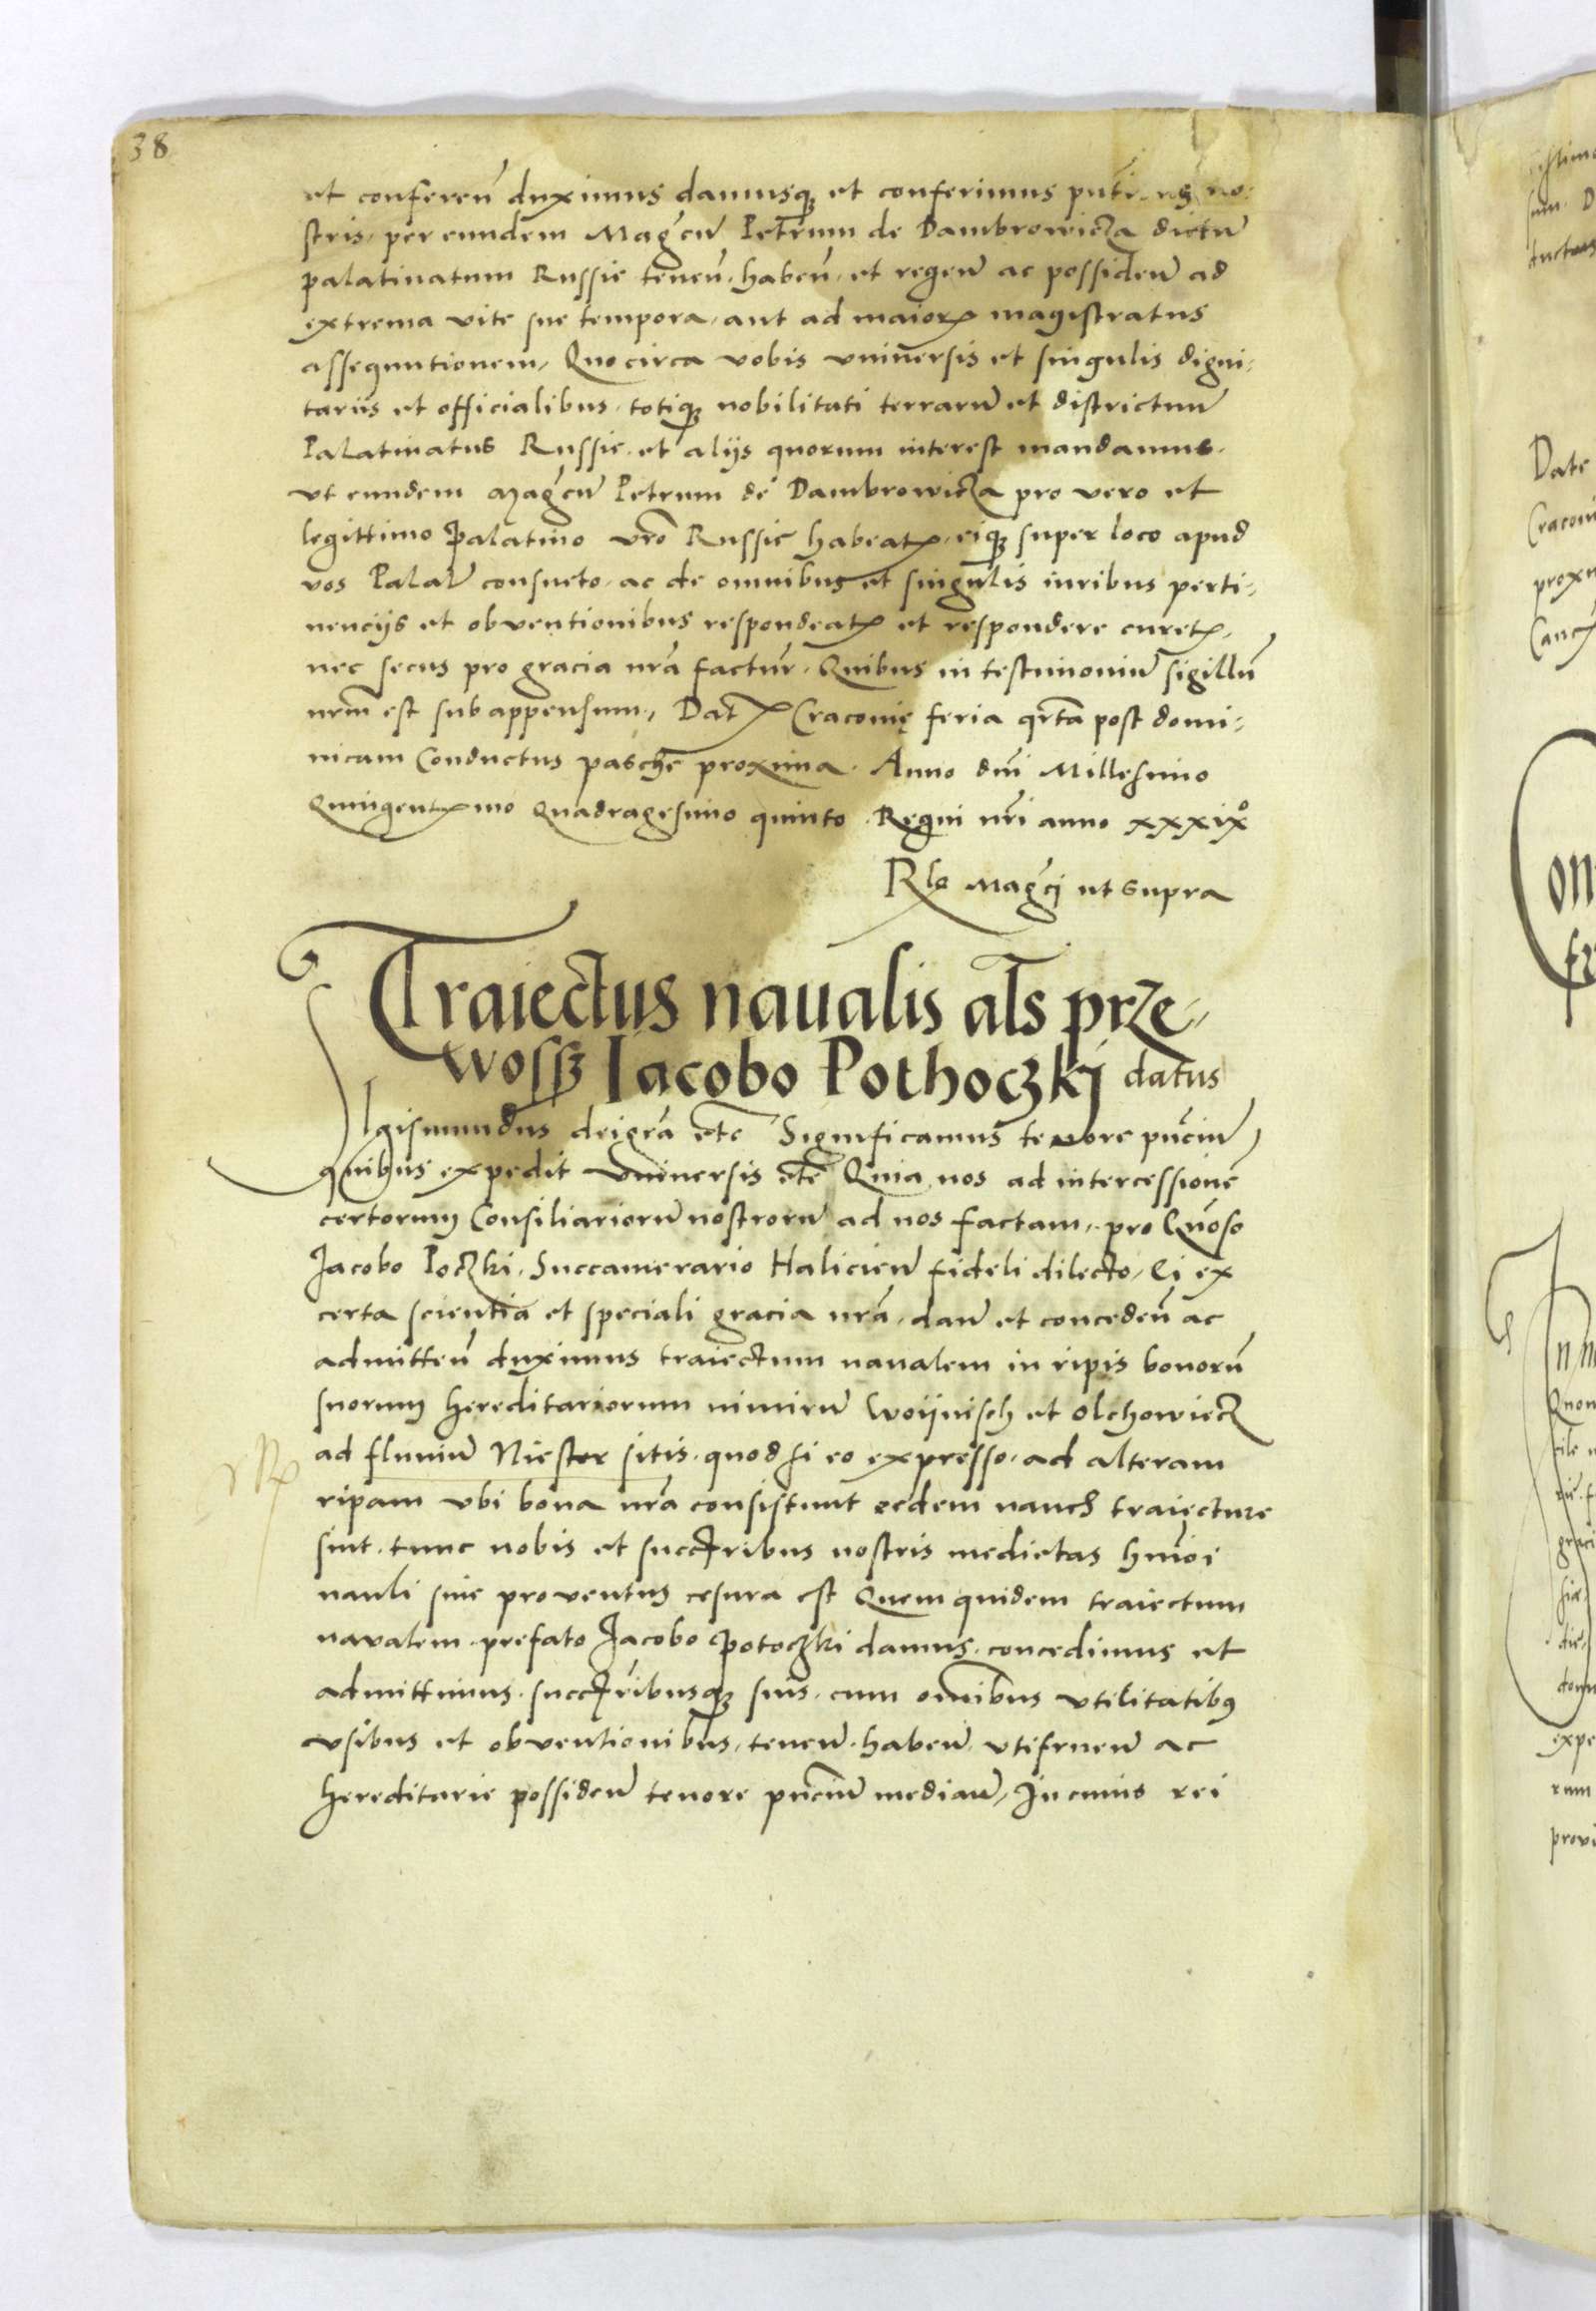 38
et conferen̄ duximus damusq₃ et conferimus pn̄ti. no:
stris. per eundem Mag̃cū Petrum de Dambrowicza dictū
palatinatum Russie tenen̄. haben̄. et regen̄ ac possiden̄ ad
extrema vite sue tempora, aut ad maioris magistratus
assequutionem, Quocirca vobis vniuersis et singulis digni,
tariis et officialibus. totiq₃ nobilitati terrarū et districtuū
Palatinatus Russie. et aliis quorum interest mandamus.
vt eundem Mag̃cū Petrum de Dambrowicza pro vero et
legittimo palatino vr̄o Russie habeatis, eiq₃ super loco apud
vos Palat̄ consueto. ac de omnibus et singulis iuribus perti,
nenciis et obventionibus respondeatis et respondere curetis,
nec secus pro gracia nr̄a factur̄. Quibus in testimoniū sigillū
nrm̄ est subappensum, Datis Cracouię feria qrt̄a post domi,
nicam Conductus pasche proxima. Anno dn̄i Millesimo
Quingentesimo Quadragesimo quinto. Regni nr̄i anno xxxixº
Rlo Mag̃ci ut supra
Traiectus naualis al̄s prze,
wosz Iacobo Pothoczkj datus
SIgismundus dei gr̄a etc̄ Significamus tenore pn̄ciū,
quibus expedit vniuersis etc̄ Quia nos ad intercessionē
certorum Consiliariorū nostrorū ad nos factam, pro Gn̄oso
Jacobo Poczki. Succamerario Halicien̄ fideli dilecto, Ei ex
certa scientia et speciali gracia nr̄a, dan̄ et conceden̄ ac
admitten̄ duximus traiectum naualem in ripis bonorū
suorum hereditariorum nimirū Woijnisch et Olchowiecz
ad fluuiū Niester sitis. quod si eo expresso. ad alteram
ripam vbi bona nr̄a consistunt eedem traiecture
sint. tunc nobis et succribus nostris medietas hm̄oi
nauli siue proventus cesura est Quem quidem traiectum
navalem. prefato Jacobo Potoczki damus. concedimus et
admittimus. succribusq₃ suis. cum omībus vtilitatib9
vsibus et obventionibus, tenen̄. haben̄. vtifruen̄ ac
hereditarie possiden̄ tenore pn̄ciū median̄, In cuius rei